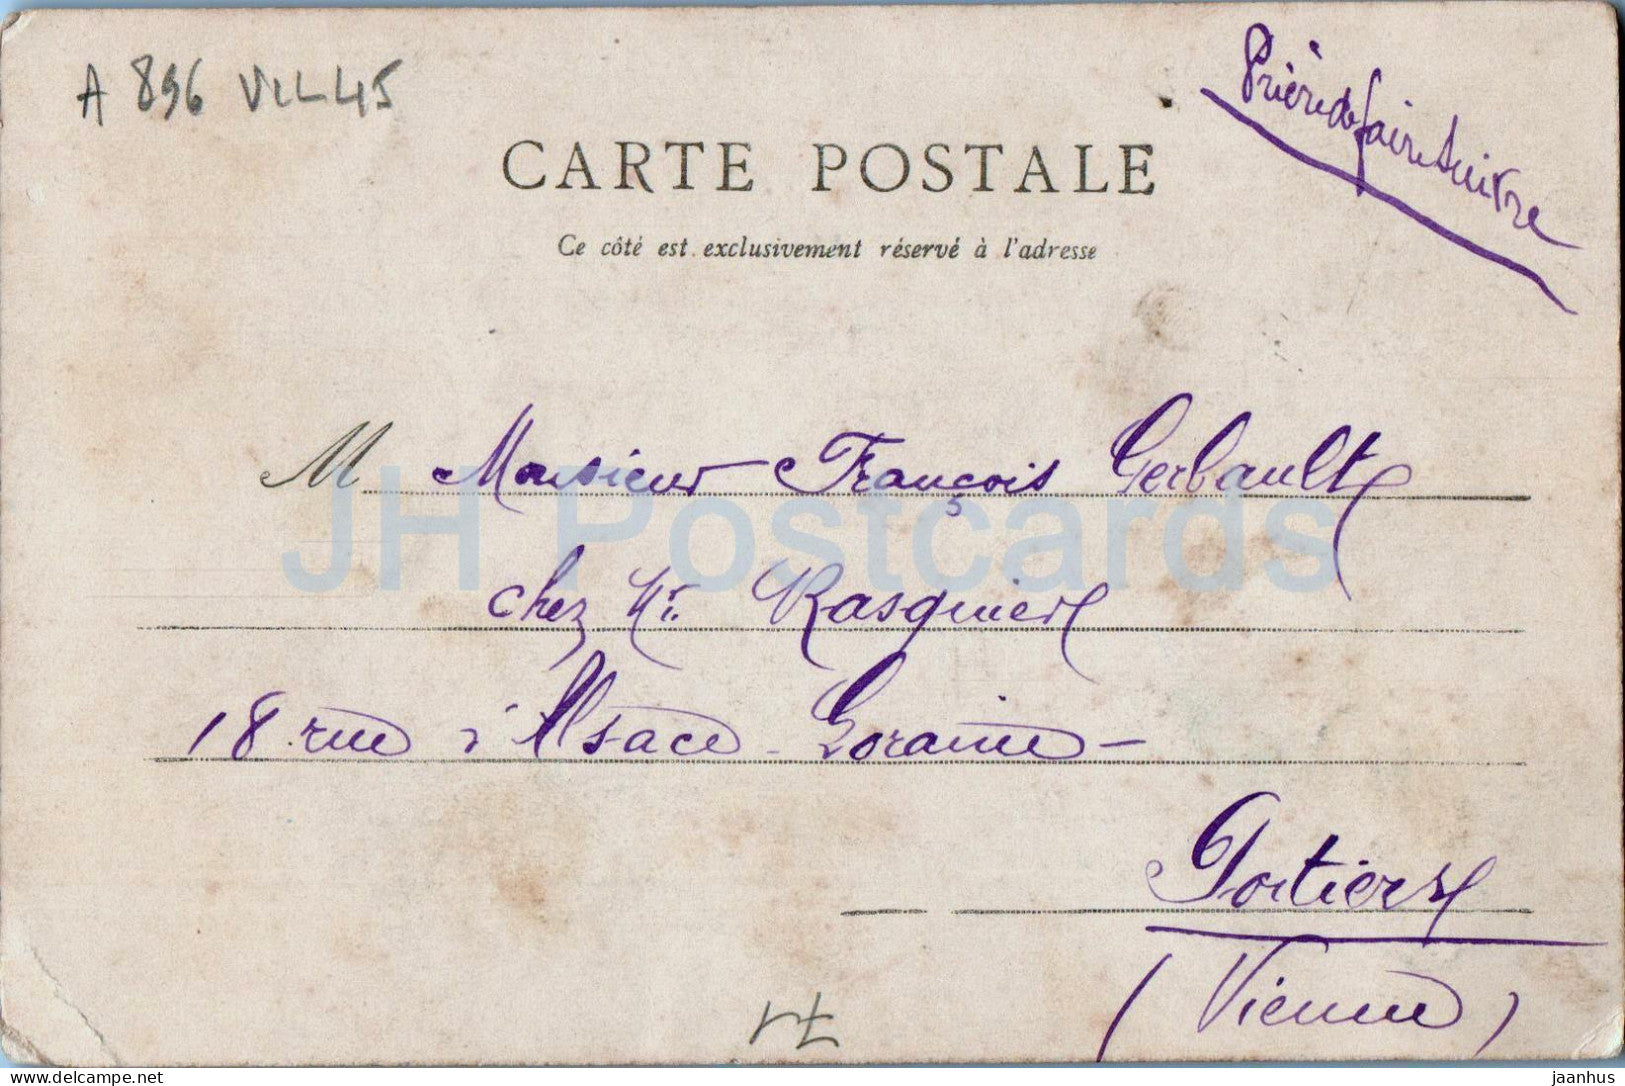 A 896 VIL 45
Prière de faire suivre
CARTE POSTALE
Ce côté est exclusivement réservé à l'adresse
M Monsieur François Gerbault
chez Mr. Rasquier
18 rue d'Alsace-Loraine-
Poitiers
(Vienne)
JH Postcards
delcampe.net
jaanhus